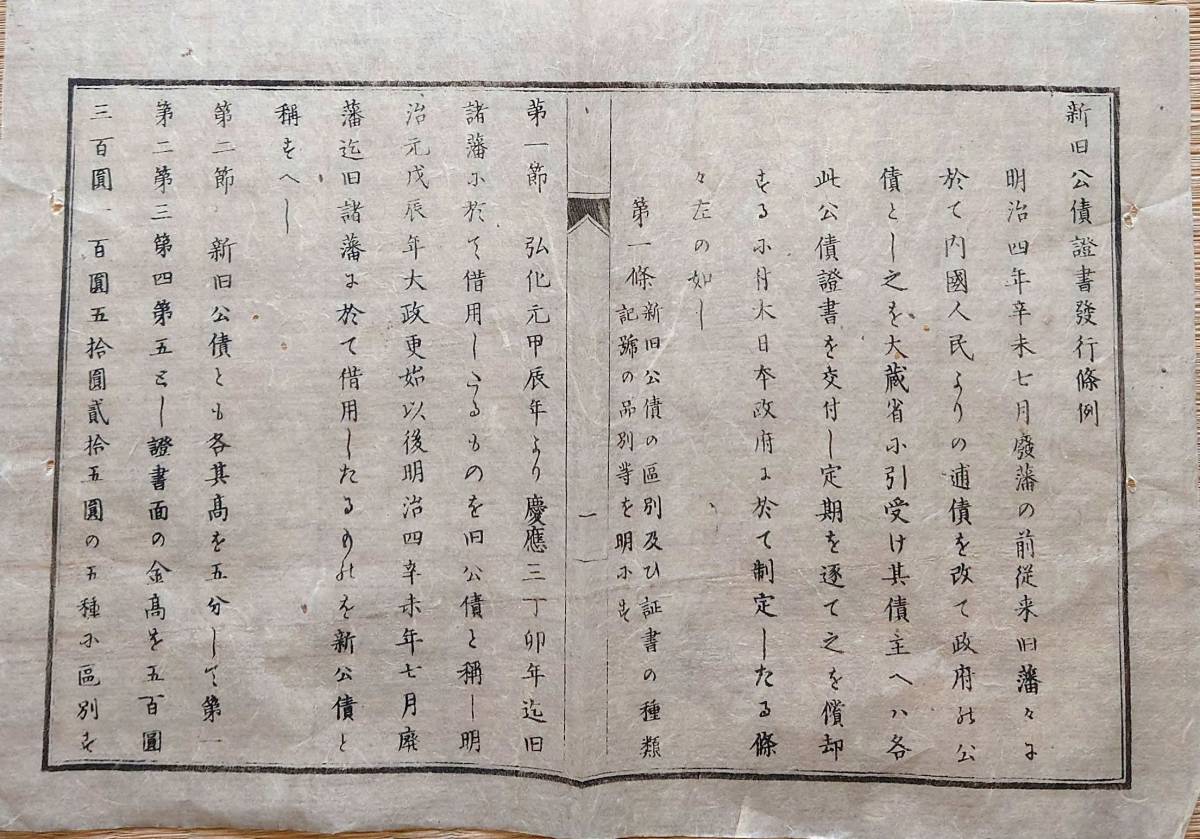 新旧公債證書發行條例
明治四年辛未七月廢藩の前従来旧藩々に
於て内國人民よりの逋債を改て政府の公
債とし之を大蔵省に引受け其債主へハ各
此公債證書を交付し定期を逐て之を償却
するに付大日本政府に於て制定したる條
々左の如し
第一條 新旧公債の區別及ひ証書の種類
記號の品別等を明にす
一
第一節 弘化元甲辰年より慶應三丁卯年迄旧
諸藩に於て借用したるものを旧公債と稱し明
治元戊辰年大政更始以後明治四辛未年七月廢
藩迄旧諸藩に於て借用したるものを新公債と
稱すへし
第二節 新旧公債とも各其高を五分して第一
第二第三第四第五とし證書面の金高を五百圓
三百圓一百圓五拾圓貳拾五圓の五種に區別す